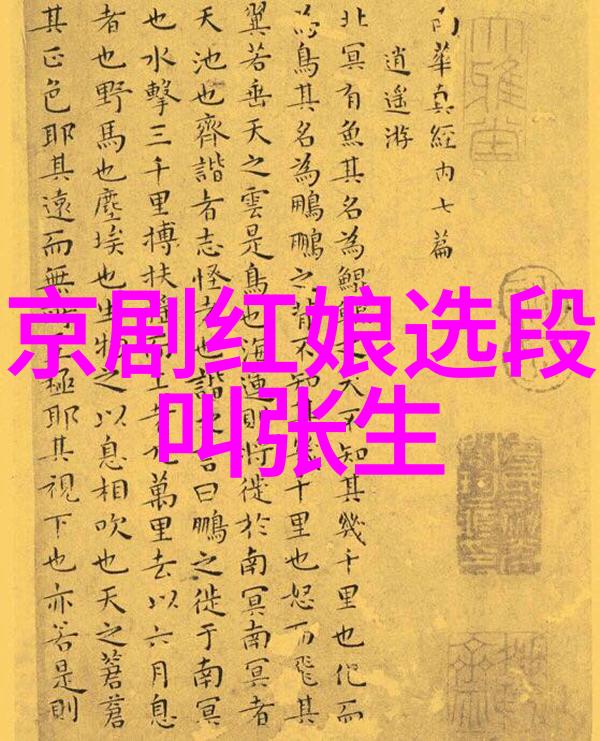 京剧红娘选段
叫张生
南華真經内七篇
逍遥游
北冥有魚其名為鯤鯤之大不知其幾千里也化而
為鳥其名為鵬鵬之背不知其幾千里也怒而飛其
翼若垂天之雲是鳥也海運則將徙於南冥南冥者
天池也齊諧者志怪者也諧之言曰鵬之徙于南冥
也水擊三千里搏扶摇而上者九萬里去以六月息
者也野馬也塵埃也生物之以息相吹也天之蒼蒼
其正色耶其遠而無所至極耶其視下也亦若是則